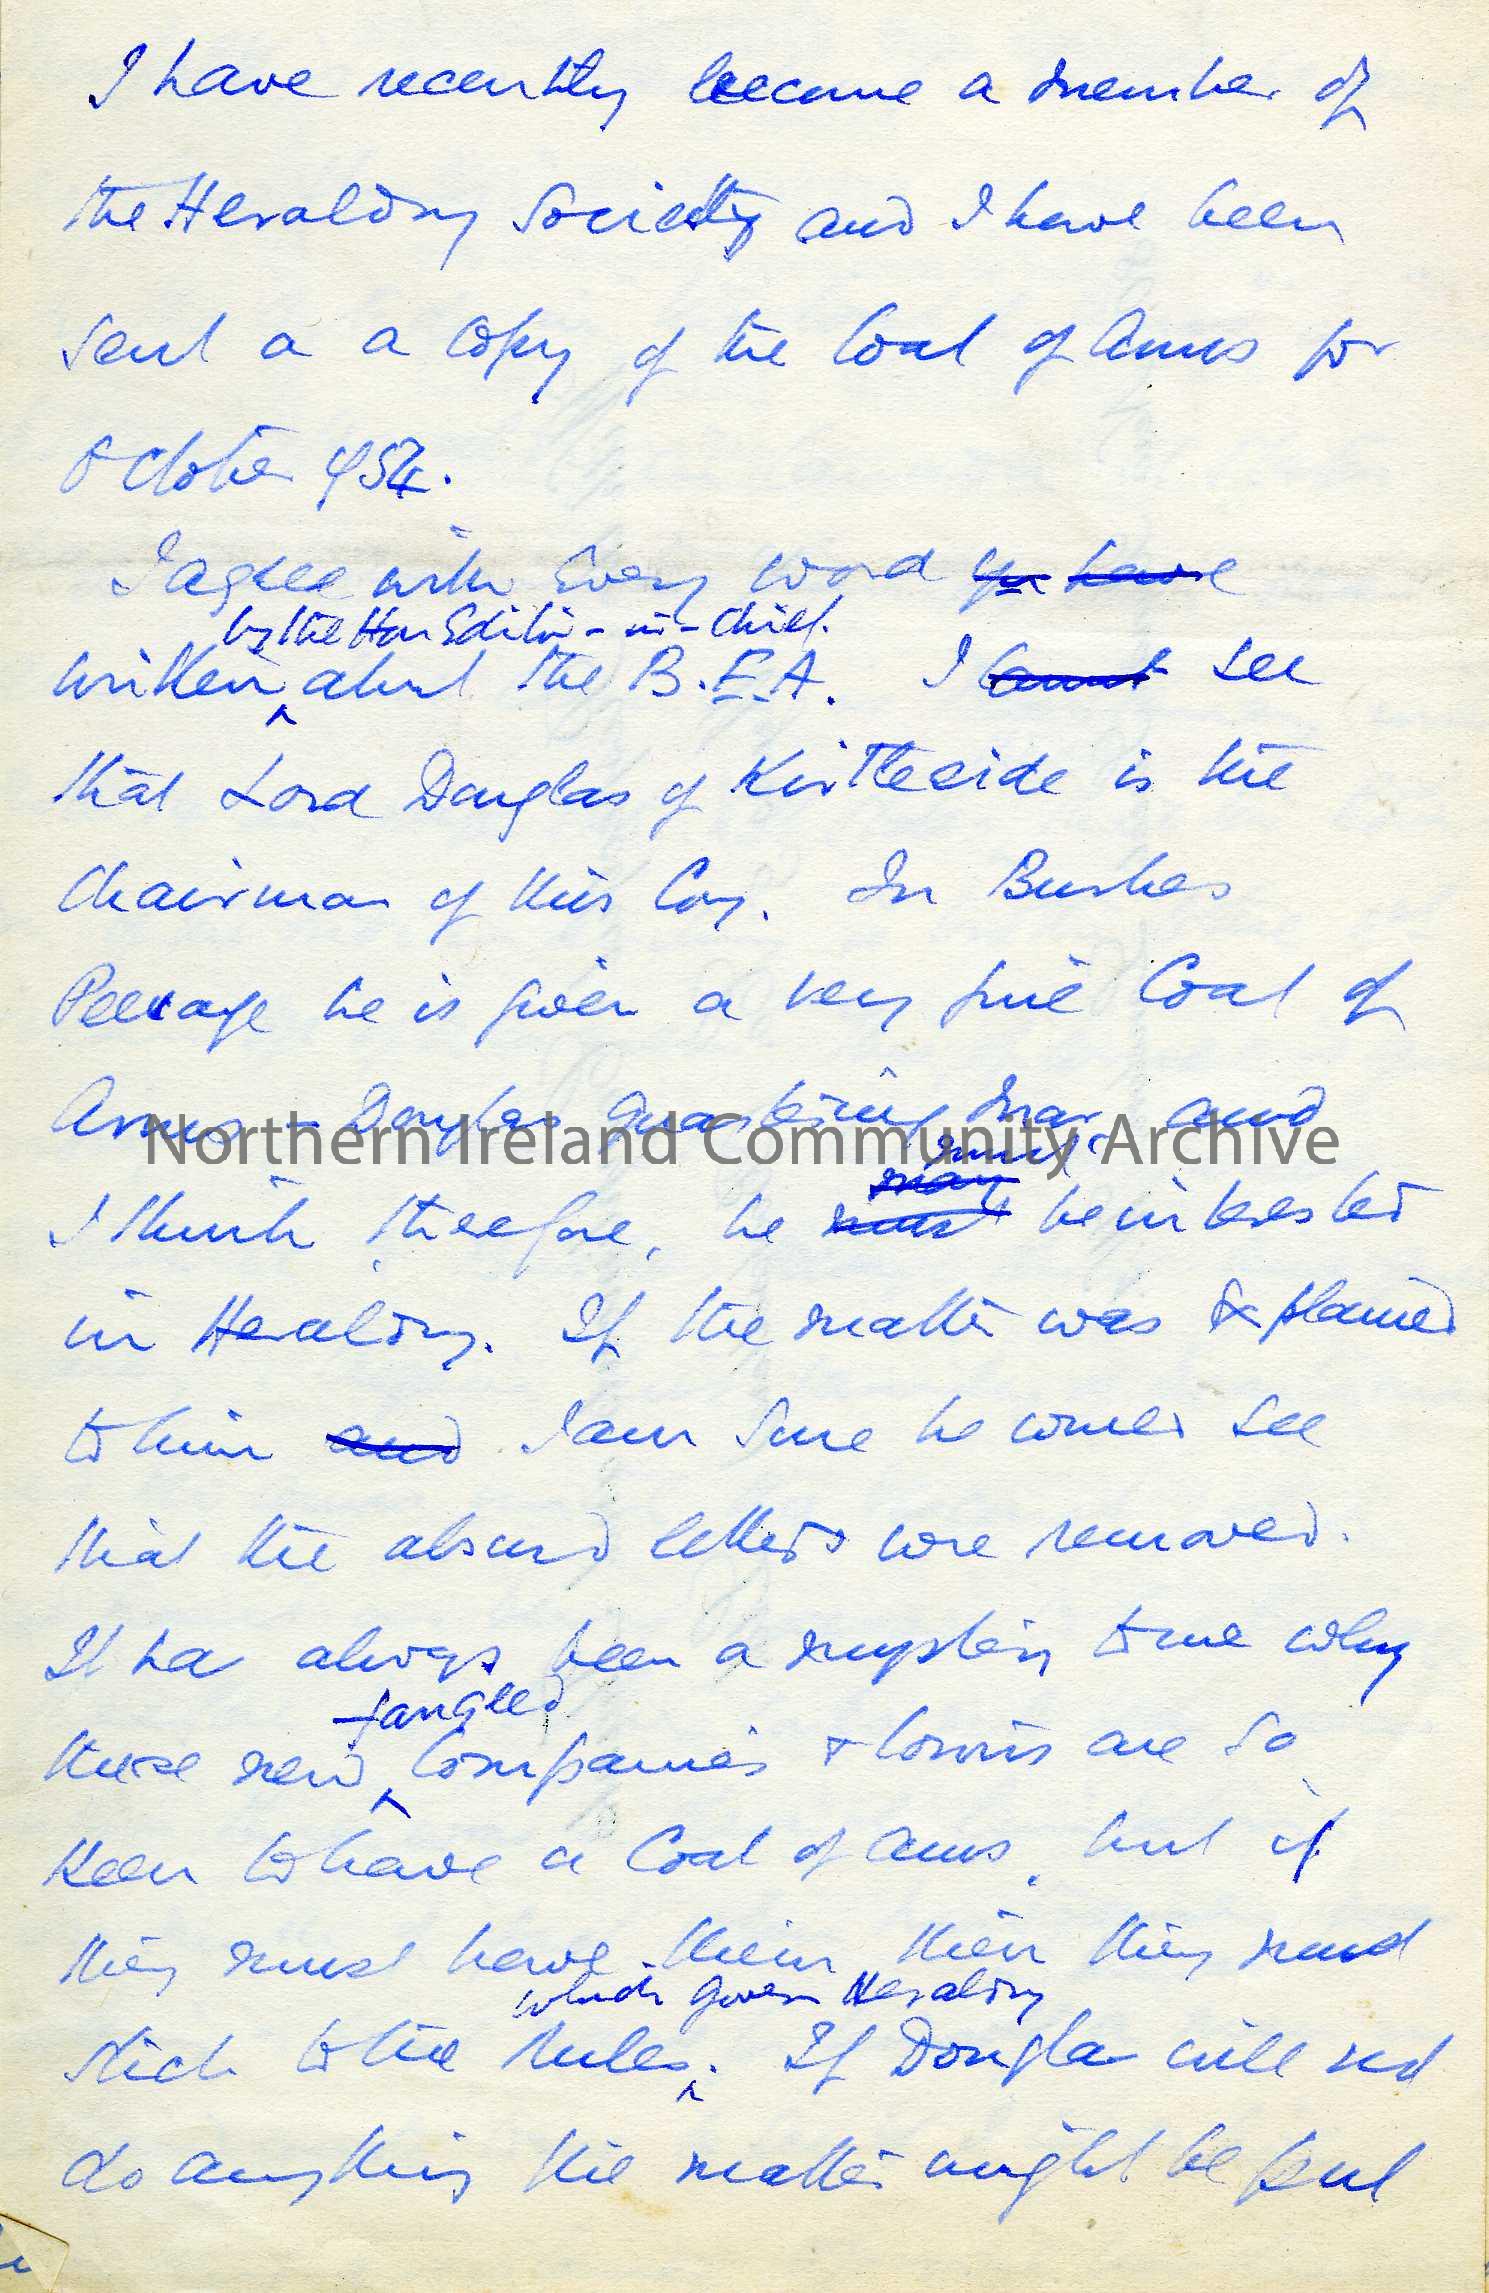 I have recently become a member of
the Heraldry Society and I have been
sent a a copy of the Coat of Arms for
October 1954.
I agree with Every word you have
by the Hon Editor-in-Chief.
written about the B.E.A. I cannot see
that Lord Douglas of Kirtleside is the
Chairman of this Coy. In Burkes
Peerage he is given a very fine Coat of
Arms - Douglas quartering Mar and
Northern Ireland Community Archive
must
may
I think, therefore, he must be interested
in Heraldry. If the matter was Explained
to him and I am sure he would see
that the absurd letters were removed.
It ha always been a mystery to me why
-fangled
these new Companies & towns are so
keen to have a Coat of arms, but if
they must have them then they must
which govern Heraldry
stick to the Rules. If Dougla will not
do anything the matter might be put